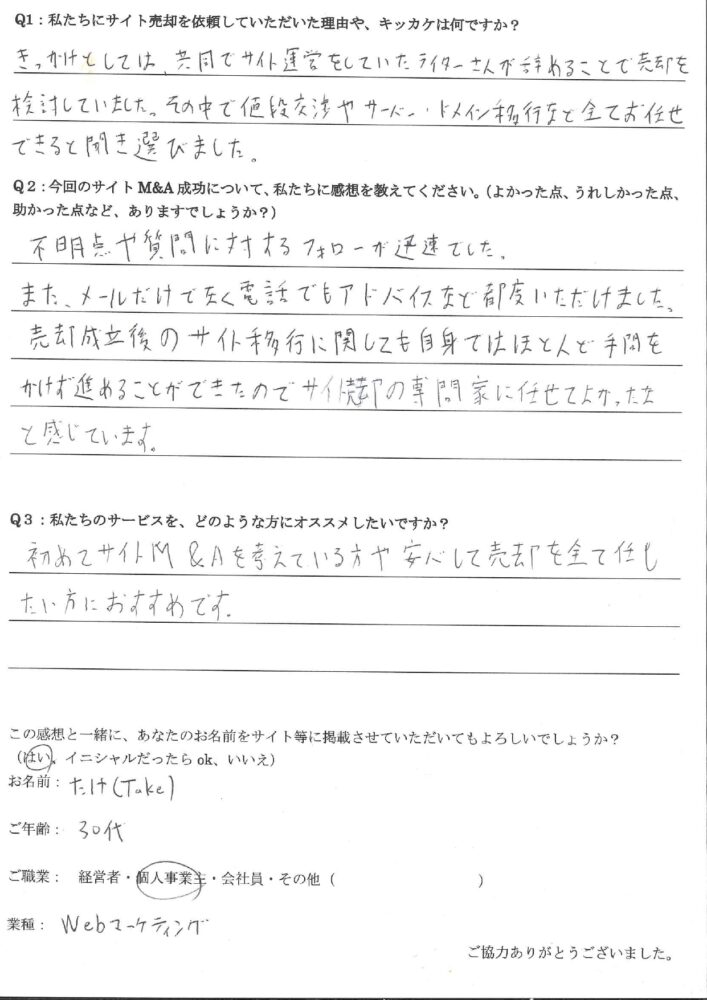 Q1：私たちにサイト売却を依頼していただいた理由や、キッカケは何ですか？
きっかけとしては、共同でサイト運営をしていたライターさんが辞めることで売却を
検討していました。その中で値段交渉やサーバー・ドメイン移行など全てお任せ
できると聞き選びました。
Q2：今回のサイト M&A 成功について、私たちに感想を教えてください。（よかった点、うれしかった点、
助かった点など、ありますでしょうか？）
不明点や質問に対するフォローが迅速でした。
また、メールだけでなく電話でもアドバイスなど都度いただけました。
売却成立後のサイト移行に関しても自身ではほとんど手間を
かけず進めることができたのでサイト売却の専門家に任せてよかったな
と感じています。
Q3：私たちのサービスを、どのような方にオススメしたいですか？
初めてサイトM&Aを考えている方や安心して売却を全て任し
たい方におすすめです。
この感想と一緒に、あなたのお名前をサイト等に掲載させていただいてもよろしいでしょうか？
（はい、イニシャルだったら ok、いいえ）
お名前：たけ(Take)
ご年齢：30代
ご職業： 経営者・個人事業主・会社員・その他（ ）
業種：Webマーケティング
ご協力ありがとうございました。